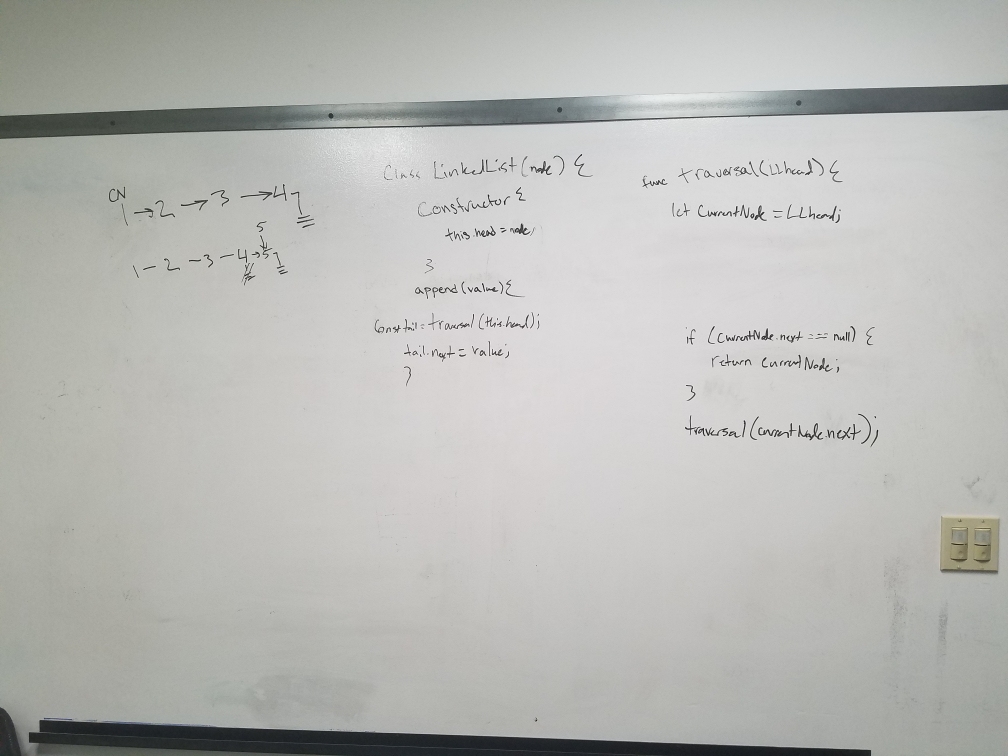 CN
1 → 2 → 3 → 4
5
1 - 2 - 3 - 4 → 5
Class LinkedList(node) {
Constructor {
this.head = node;
}
append(value) {
Const tail = traversal(this.head);
tail.next = value;
}
func traversal(LLhead) {
let CurrentNode = LLhead;
if (CurrentNode.next === null) {
return CurrentNode;
}
traversal(currentNode.next);